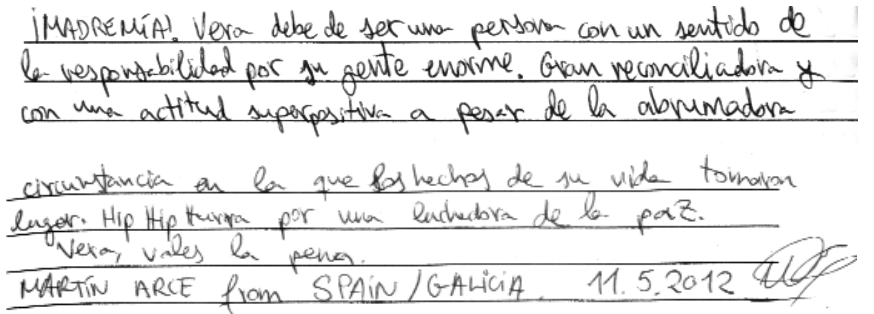 ¡MADREMÍA!. Vera debe de ser una persona con un sentido de
la responsabilidad por su gente enorme. Gran reconciliadora y
con una actitud superpositiva a pesar de la abrumadora
circunstancia en la que los hechos de su vida tomaron
lugar. Hip Hip Hurra por una luchadora de la paz.
Vera, vales la pena.
MARTÍN ARCE from SPAIN / GALICIA 11.5.2012